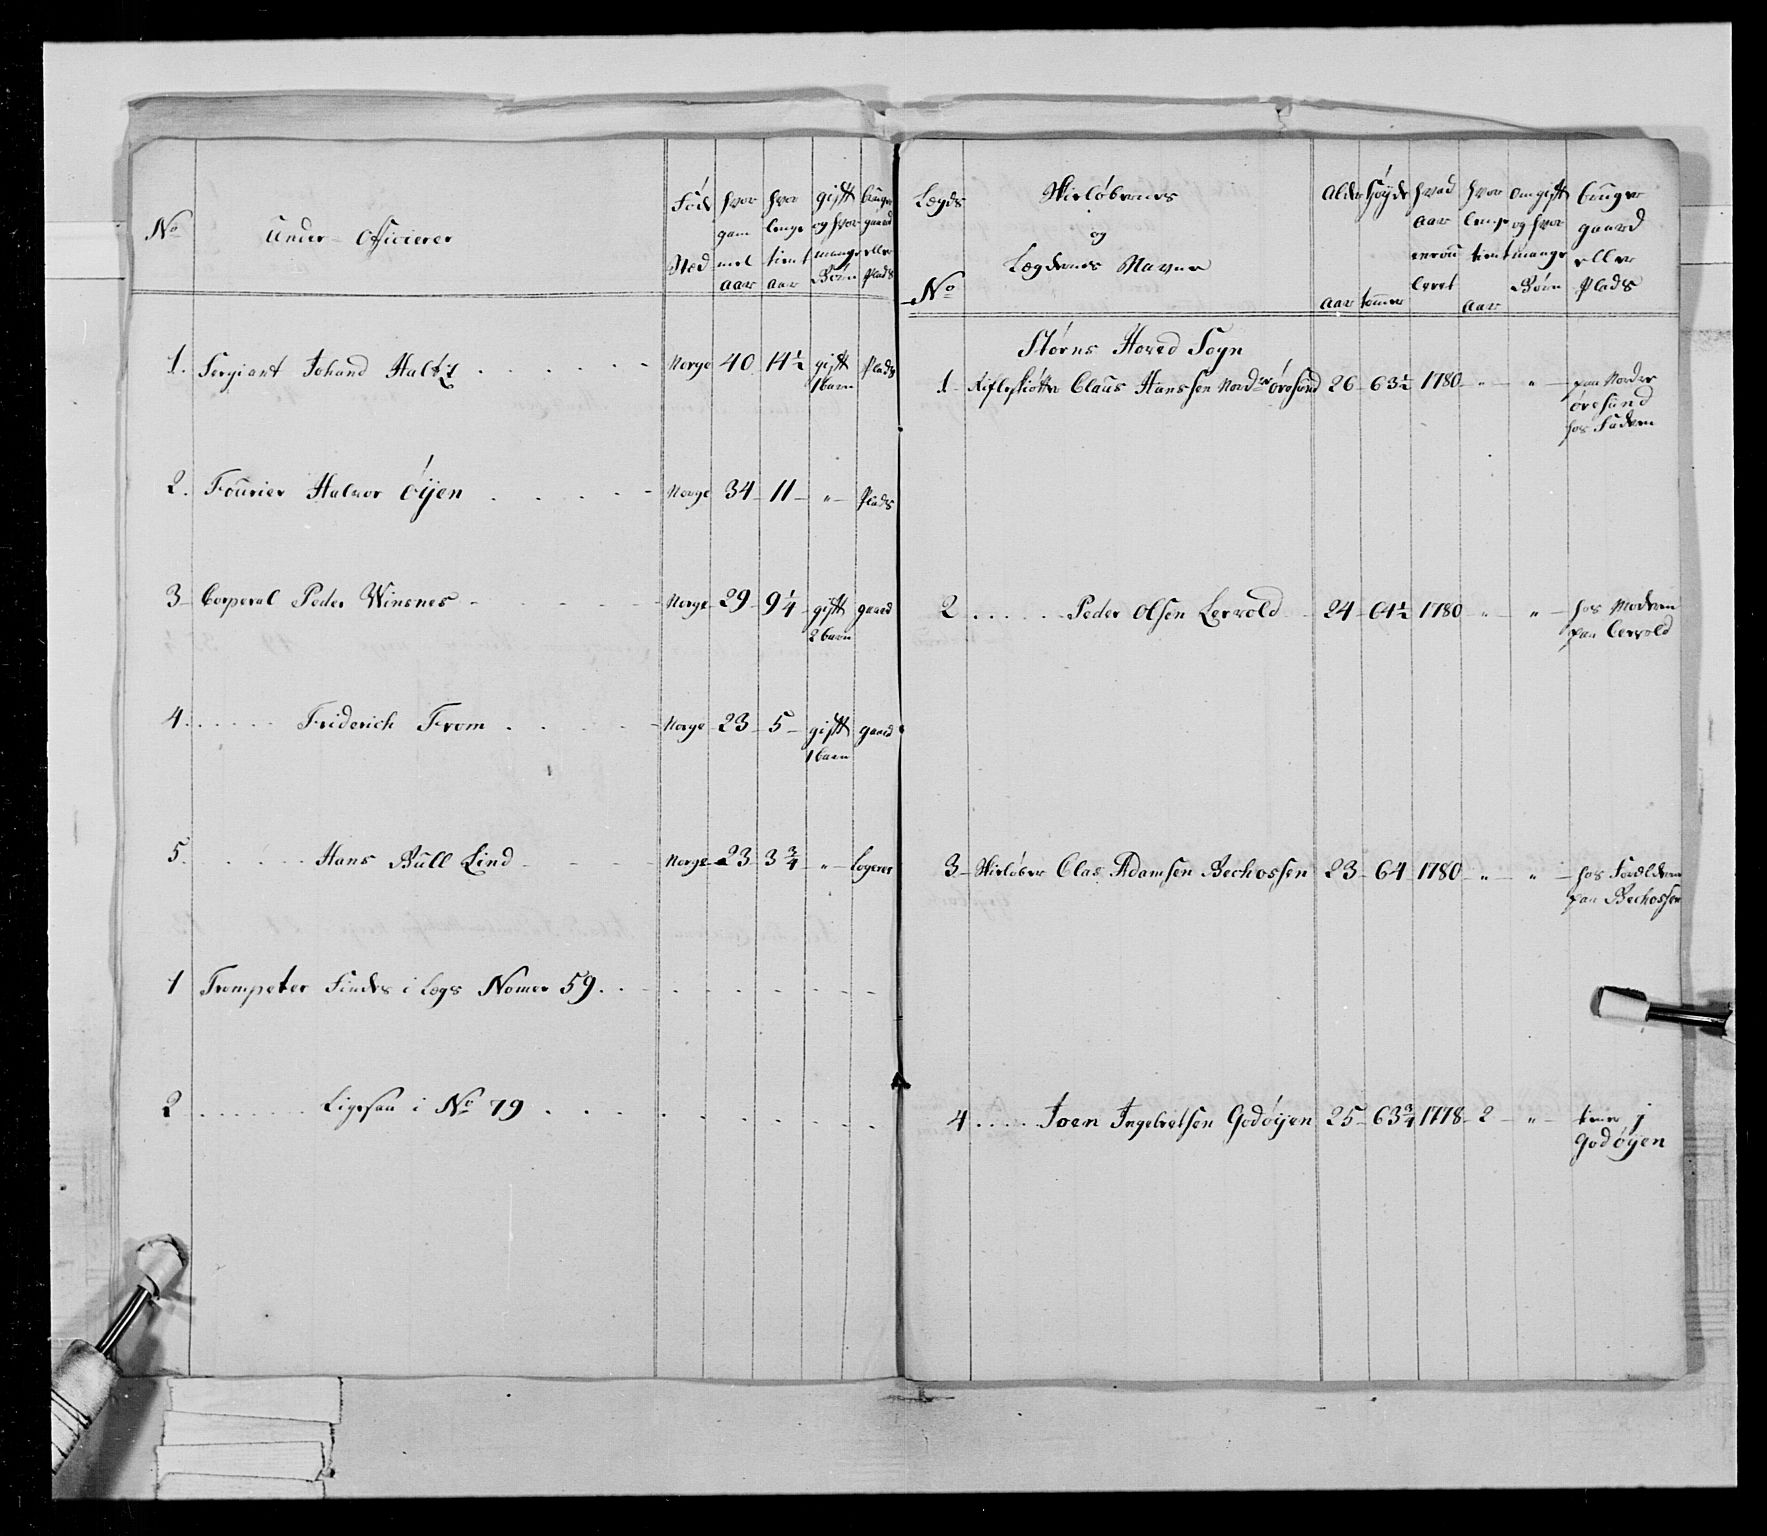 No
Under-Officierer
Føde Stæd
hvor gam mel aar
hvor lenge tient aar
gift og hvor mange Børn
bruger gaard eller Plads
1. Sergiant Johand Haltz Norge 40 14½ gift 1 barn Plads
2. Fourier Halvor Øÿen Norge 34 11 " Plads
3 Corperal Peder Winsnes Norge 29 9¼ gift 2 barn gaard
4 Friderich From Norge 23 5 gift 1 barn gaard
5. Hans Bull Lind Norge 23 3¾ " Logerer
1 Trompeter findes i Legs Nomer 59
2 Ligesaa i No 79
Lægds No
Skieløbernes
og
Lægdernes Navne
Alder aar
Høyde tommer
hvad aar enroulleret
hvor lenge tient aar
om gift og hvor mange Børn
bruger gaard eller Plads
Størns Hoved Sogn
1 Claus Hanssen Nordre Øresund 26 63½ 1780 " " paa Nordre
Øresund
hos Faderen
2 Peder Olsen Lervold 24 64½ 1780 " " hos Moderen
paa Lervold
3 Skieløber Clas Adamsen Bechossen 23 64 1780 " " hos Forældrene
paa Bechossen
4 Joen Ingebretsen Godøÿen 25 63¾ 1778 2 " tiener j
Godøÿen